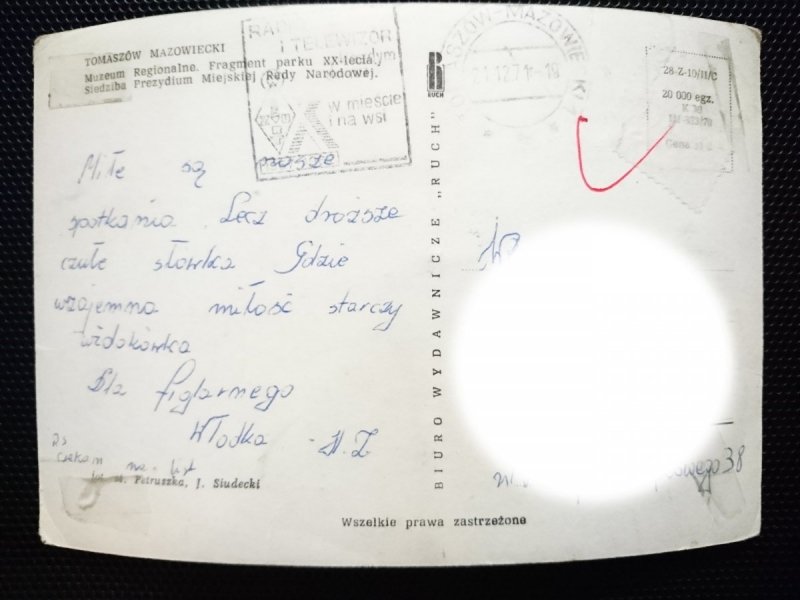 TOMASZÓW MAZOWIECKI
Muzeum Regionalne. Fragment parku XX-lecia.
Siedziba Prezydium Miejskiej Rady Narodowej.
RADIO
I TELEWIZOR
w mieście
i na wsi
RUCH
21.12.71-19
28-Z-10/II/C
20 000 egz.
Miłe są nasze
spotkania Lecz droższe
czułe słówka Gdzie
wzajemna miłość starczy
widokówka
Dla figlarnego
Włodka
Ps
czekam na list
Petruszka, J. Siudecki
BIURO WYDAWNICZE „RUCH"
38
Wszelkie prawa zastrzeżone